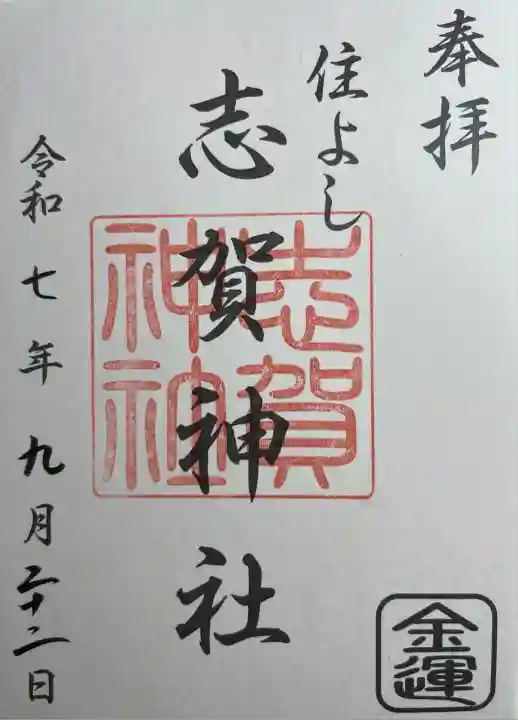 奉拝
住よし
志賀神社
志賀
神社
令和七年九月二十二日
金運